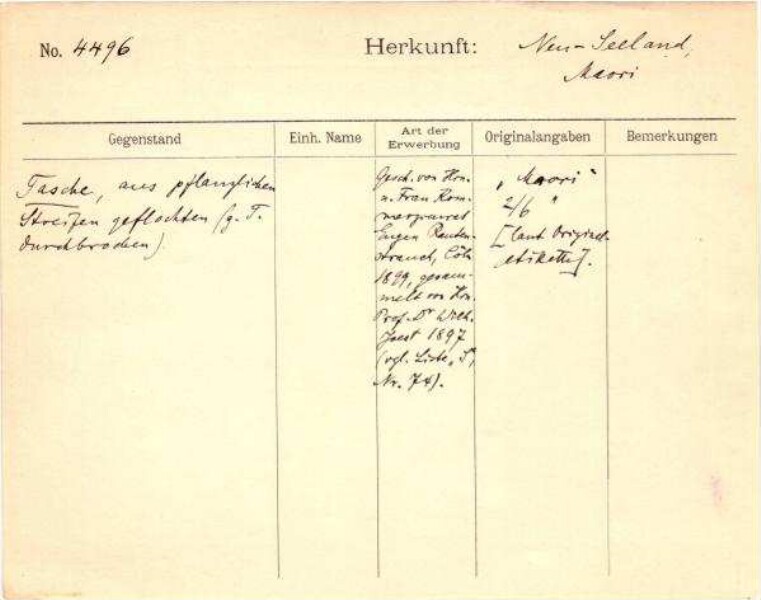 No. 4496 Herkunft: Neu-Seeland,
Maori
Gegenstand Einh. Name Art der Erwerbung Originalangaben Bemerkungen
Tasche, aus pflanzlichen
Streifen geflochten (z. T.
durchbrochen).
Gesch. von Hrn.
u. Frau Kom-
merzienrat
Eugen Rauten-
strauch, Cöln
1899, gesam-
melt von Hrn.
Prof. Dr Wilh.
Joest 1897
(vgl. Liste „S",
Nr. 74).
„Maori"
2/6 "
[laut Original-
etikette].